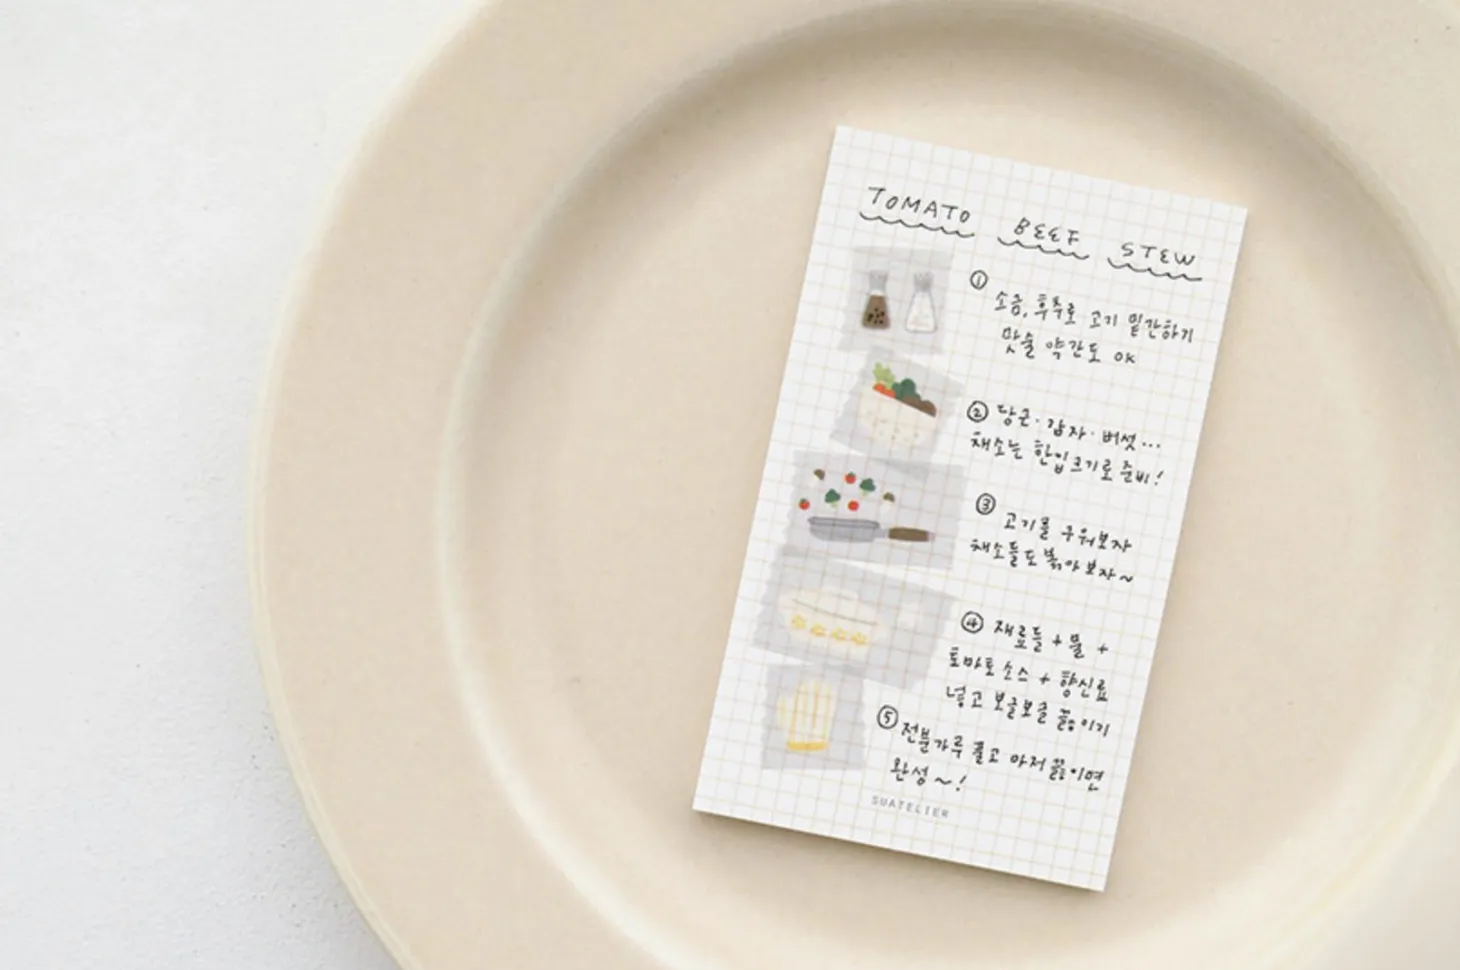 TOMATO BEEF STEW
① 소금, 후추로 고기 밑간하기
맛술 약간도 OK
② 당근·감자·버섯...
채소는 한입크기로 준비!
③ 고기를 구워보자
채소들도 볶아보자~
④ 재료들 + 물 +
토마토소스 + 향신료
넣고 보글보글 끓이기
⑤ 전분가루 풀고 마저 끓이면
완성~!
SUATELIER